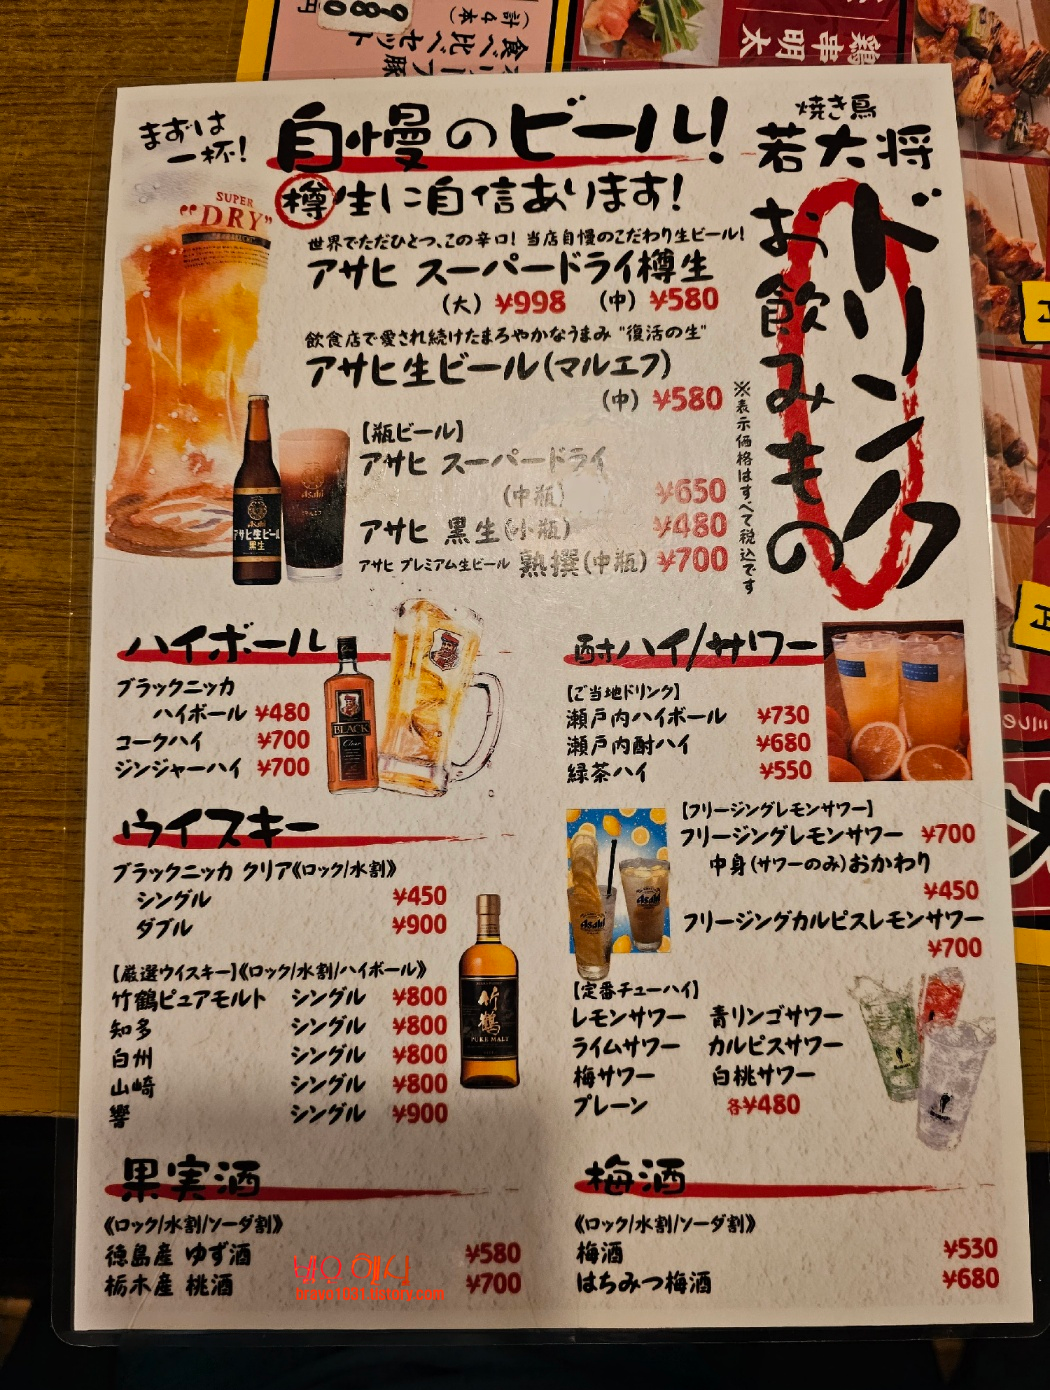 980
(計4本)
食べ比べセット
鶏串明太
まずは
一杯!
自慢のビール!
樽生に自信あります!
SUPER
"DRY"
世界でただひとつ、この辛口! 当店自慢のこだわり生ビール!
アサヒ スーパードライ樽生
(大) ¥998 (中) ¥580
飲食店で愛され続けたまろやかなうまみ "復活の生"
アサヒ生ビール(マルエフ)
(中) ¥580
【瓶ビール】
アサヒ スーパードライ
(中瓶) ¥650
アサヒ 黒生(小瓶) ¥480
アサヒ プレミアム生ビール 熟撰(中瓶) ¥700
Asahi
アサヒ生ビール
黒生
Asahi
※表示価格はすべて税込です
焼き鳥
若大将
ドリンク
お飲みもの
ハイボール
ブラックニッカ
ハイボール ¥480
コークハイ ¥700
ジンジャーハイ ¥700
BLACK
Clear
ウイスキー
ブラックニッカ クリア《ロック/水割》
シングル ¥450
ダブル ¥900
【厳選ウイスキー】《ロック/水割/ハイボール》
竹鶴ピュアモルト シングル ¥800
知多 シングル ¥800
白州 シングル ¥800
山崎 シングル ¥800
響 シングル ¥900
竹鶴
PURE MALT
果実酒
《ロック/水割/ソーダ割》
徳島産 ゆず酒 ¥580
栃木産 桃酒 ¥700
酎ハイ/サワー
【ご当地ドリンク】
瀬戸内ハイボール ¥730
瀬戸内酎ハイ ¥680
緑茶ハイ ¥550
【フリージングレモンサワー】
フリージングレモンサワー ¥700
中身(サワーのみ)おかわり
¥450
フリージングカルピスレモンサワー
¥700
Asahi
Asahi
【定番チューハイ】
レモンサワー 青リンゴサワー
ライムサワー カルピスサワー
梅サワー 白桃サワー
プレーン 各¥480
梅酒
《ロック/水割/ソーダ割》
梅酒 ¥530
はちみつ梅酒 ¥680
bravo1031.tistory.com